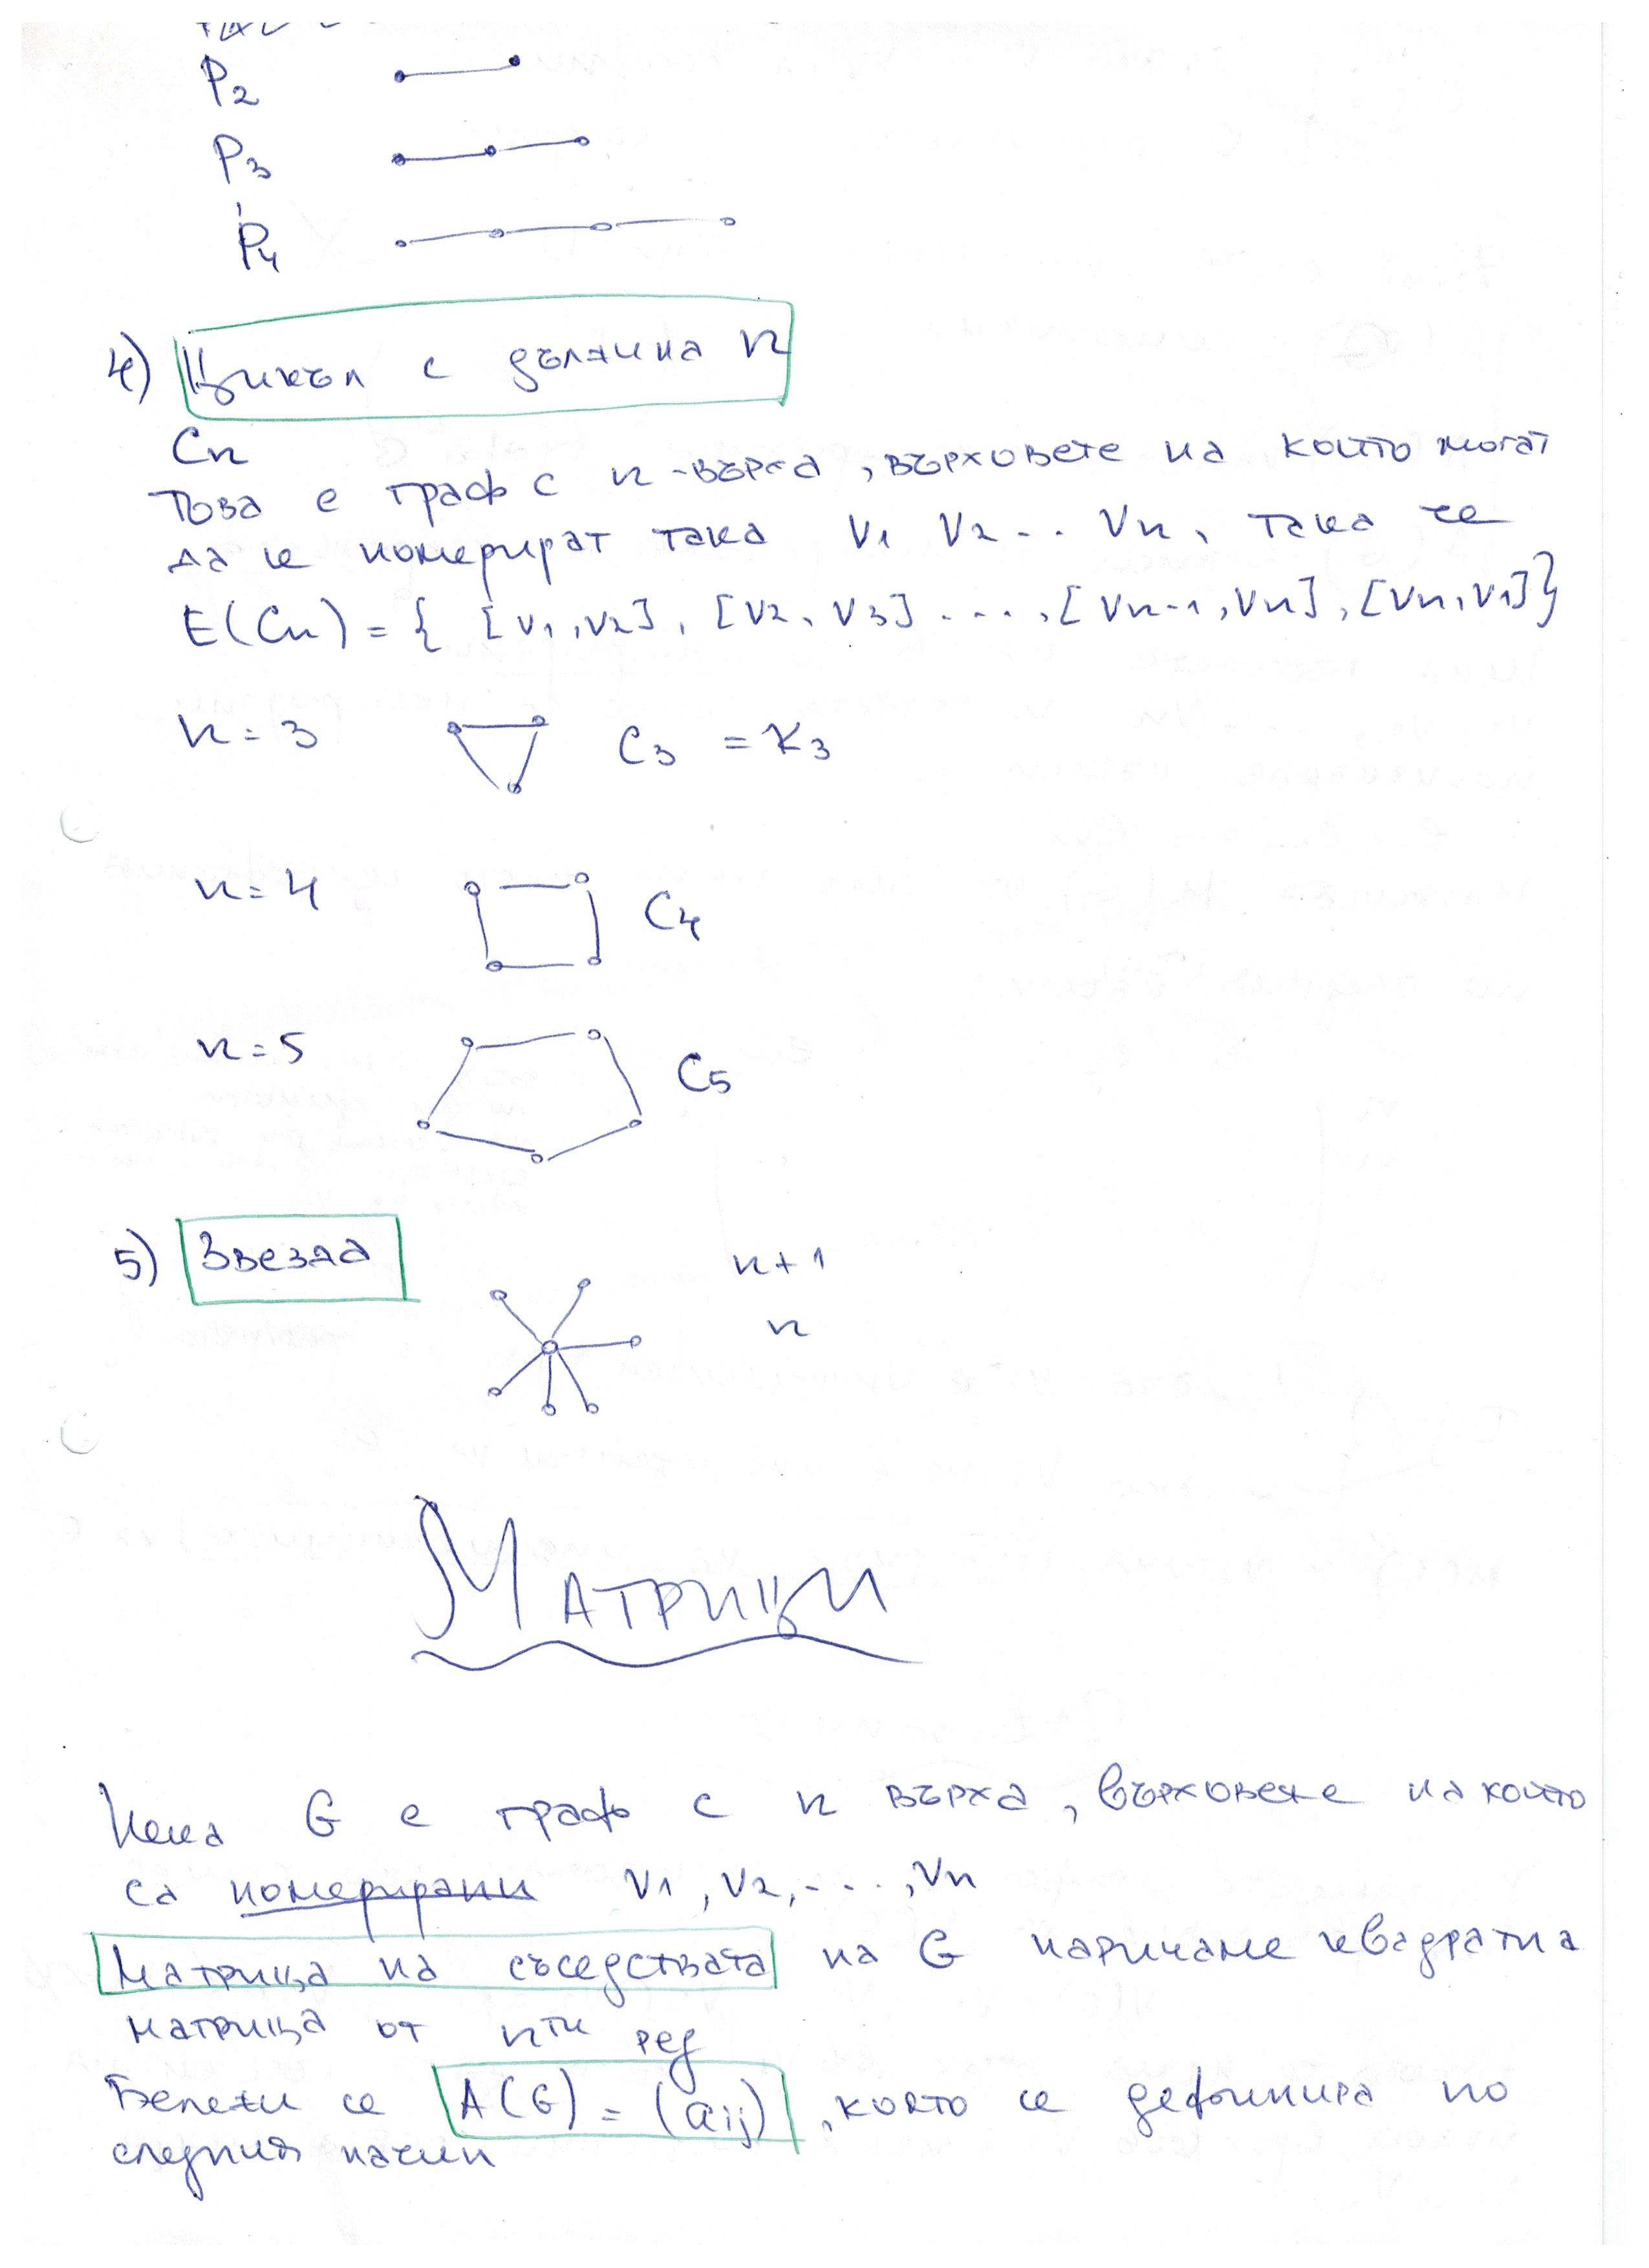 P2
P3
P4
4) Цикъл с дължина n
Cn
Това е граф с n-върха, върховете на който могат
да се номерират така V1 V2 ... Vn, така че
E(Cn) = { [v1,v2], [v2,v3] ...,[vn-1,vn],[vn,v1]}
n=3 C3 = K3
n=4 C4
n=5 C5
5) Звезда n+1
n
Матрици
Нека G е граф с n върха, върховете на който
са номерирани v1, v2,...,vn
Матрица на съседствата на G наричаме квадратна
матрица от nти ред
Бележи се A(G) = (aij), която се дефинира по
следния начин